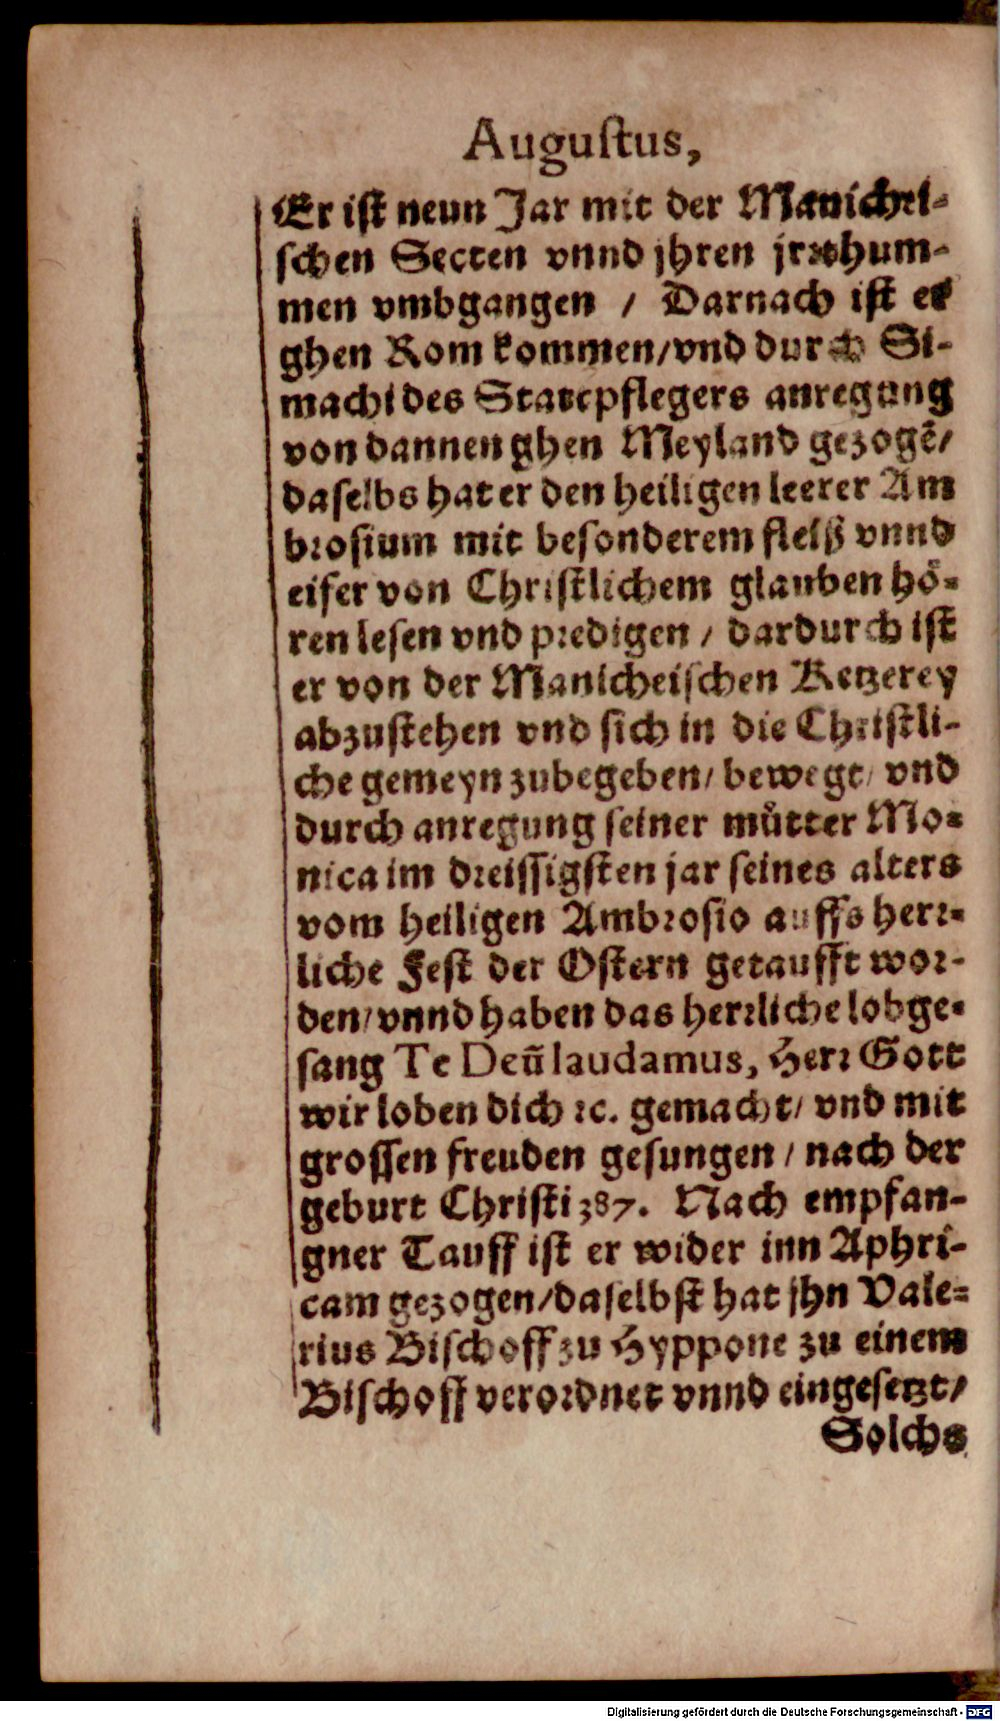 Augustus,
Er ist neun Jar mit der Manichei-
schen Secten vnnd jhren jrrthum-
men vmbgangen / Darnach ist er
ghen Rom kommen/vnd durch Si-
machi des Statpflegers anregung
von dannen ghen Meyland gezogē/
daselbs hat er den heiligen leerer Am
brosium mit besonderem fleiß vnnd
eifer von Christlichem glauben hö-
ren lesen vnd predigen / dardurch ist
er von der Manicheischen Ketzerey
abzustehen vnd sich in die Christli-
che gemeyn zubegeben/ bewegt/ vnd
durch anregung seiner můtter Mo-
nica im dreissigsten jar seines alters
vom heiligen Ambrosio auffs herr-
liche Fest der Ostern getaufft wor-
den/vnnd haben das herrliche lobge-
sang Te Deū laudamus, Herr Gott
wir loben dich ꝛc. gemacht/ vnd mit
grossen freuden gesungen / nach der
geburt Christi 387. Nach empfan-
gner Tauff ist er wider inn Aphri-
cam gezogen/daselbst hat jhn Vale-
rius Bischoff zu Hyppone zu einem
Bischoff verordnet vnnd eingesetzt/
Solchs
Digitalisierung gefördert durch die Deutsche Forschungsgemeinschaft - DFG